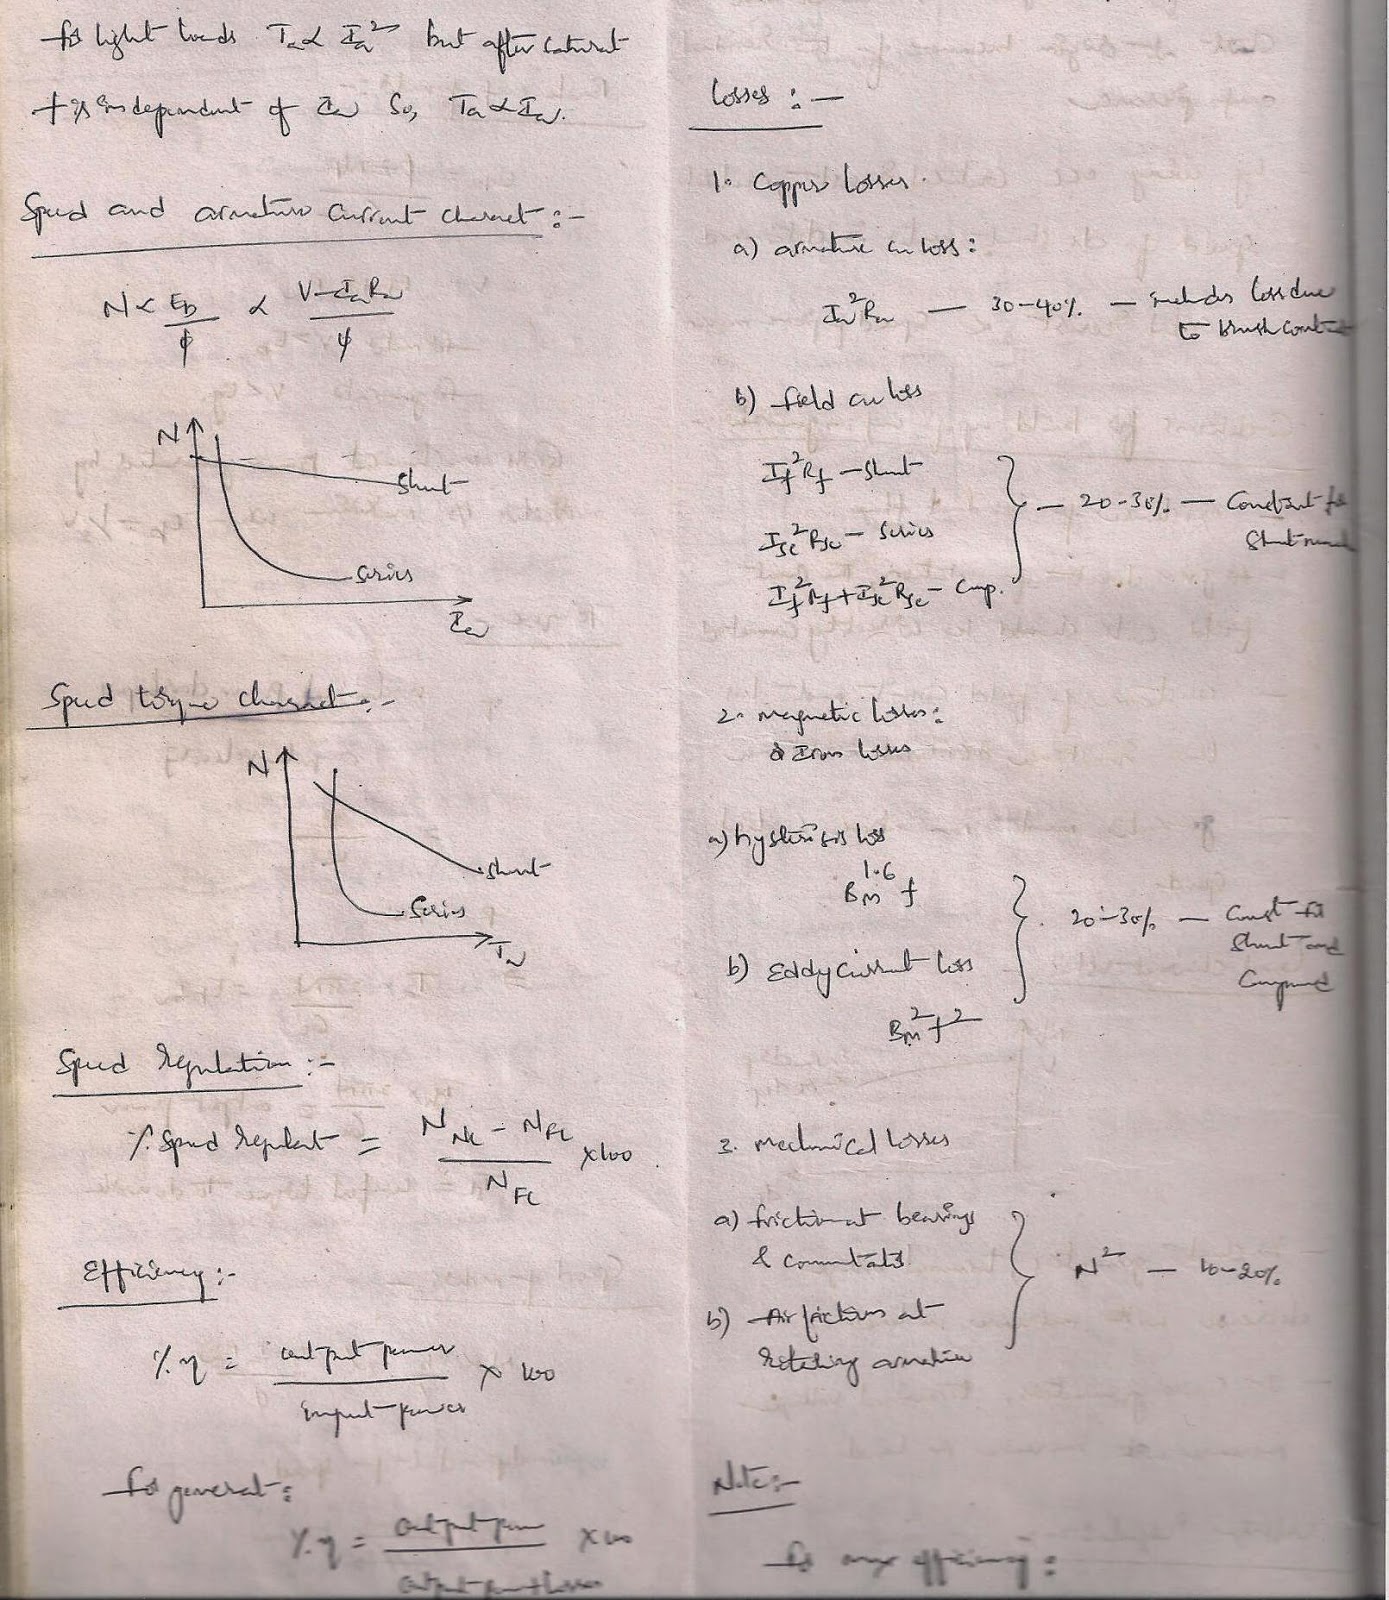 for light loads Ta ∝ Ia² but after saturat
φ is independent of Ia So, Ta ∝ Ia.
Speed and armature current charact:-
N ∝ Eb/φ ∝ V-IaRa/φ
N
Shunt
Series
Ia
Speed torque charact:-
N
Shunt
Series
Ta
Speed Regulation:-
% Speed Regulat = N_NL - N_FL / N_FL × 100
Efficiency:-
% η = output power / Input power × 100
for generat:
% η = output power / output power + losses × 100
Losses :-
1. Copper losses.
a) armature cu loss:
Ia²Ra — 30-40% — includes loss due
to brush contact
b) field cu loss
If²Rf - Shunt
Ise²Rse - Series
— 20-30% — Constant for
Shunt
If²Rf + Ise²Rse - Comp.
2. magnetic losses:
& Iron losses
a) hysterisis loss
Bm^1.6 f
20-30% — Const for
Shunt and
Compound
b) Eddy current loss
Bm² f²
3. Mechanical losses
a) friction at bearings
& commutator
N² — 10-20%
b) Air friction at
rotating armature
Note:-
for max efficiency: